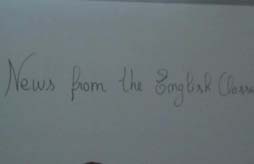 News from the English Class